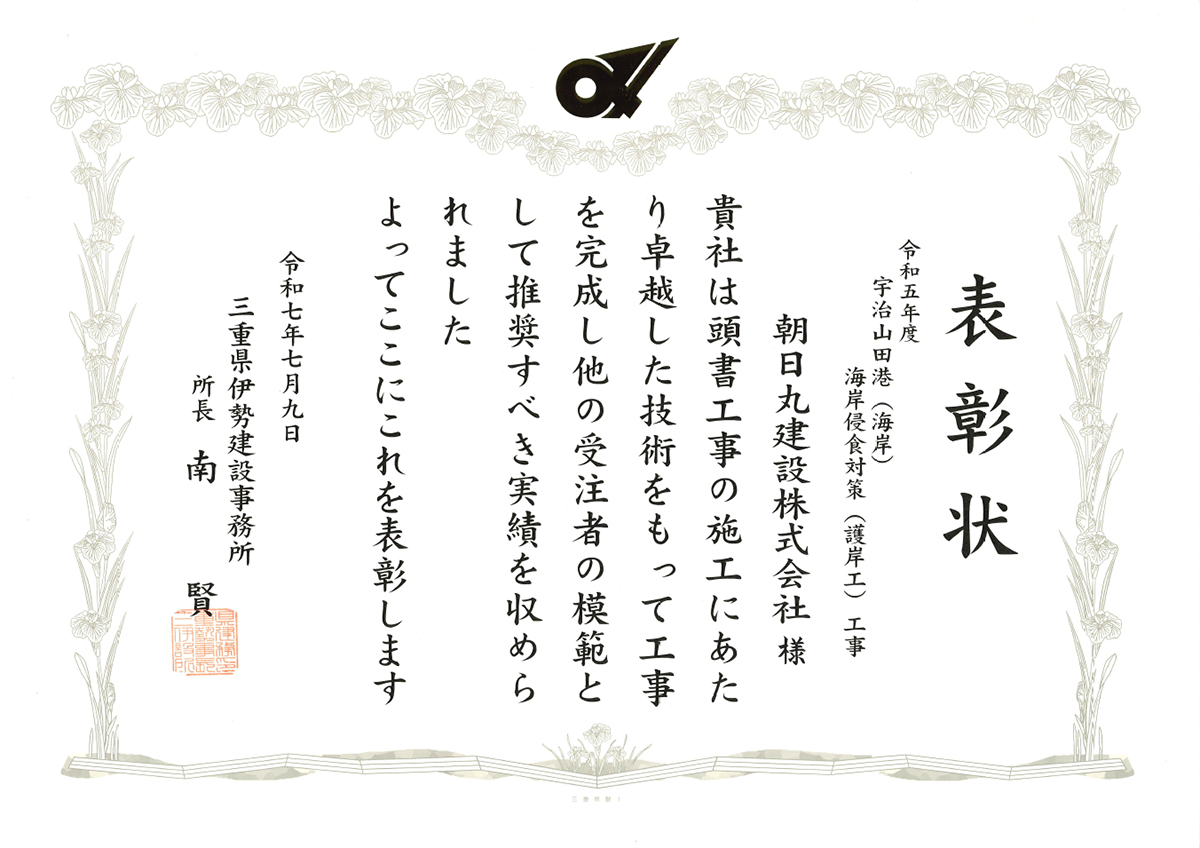 表彰状
令和五年度
宇治山田港（海岸）
海岸侵食対策（護岸工）工事
朝日丸建設株式会社 様
貴社は頭書工事の施工にあた
り卓越した技術をもって工事
を完成し他の受注者の模範と
して推奨すべき実績を収めら
れました
よってここにこれを表彰します
令和七年七月九日
三重県伊勢建設事務所
所長 南 賢